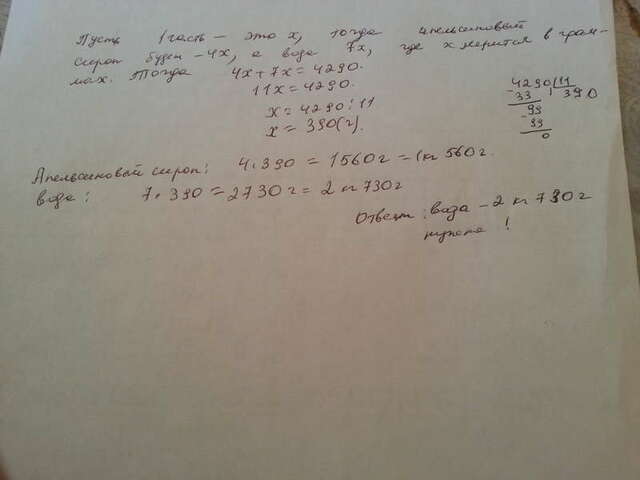 Пусть 1 часть – это х, тогда апельсиновый
сироп будет – 4х, а вода 7х, где х мерится в грам-
мах. Тогда 4х+7х=4290.
11х=4290.
х=4290:11
х=390(г).
4290 11
33 390
99
99
0
Апельсиновый сироп: 4·390=1560г=1кг 560г.
вода: 7·390=2730г=2кг730г
Ответ: вода – 2 кг 730 г
нужно !